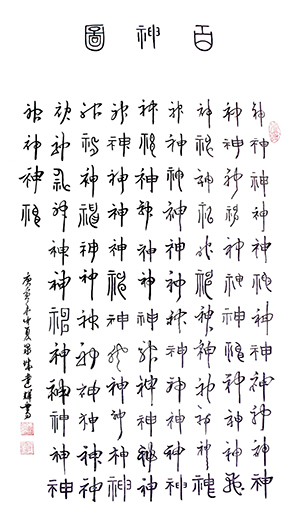 百神圖
神神神神神神神神神神神神
神神神神神神神神神神神神
神神神神神神神神神神神神
神神神神神神神神神神神神
神神神神神神神神神神神神
神神神神神神神神神神神神
神神神神神神神神神神神神
神神神神神神神神神神神神
神神神神
庚寅年仲夏書